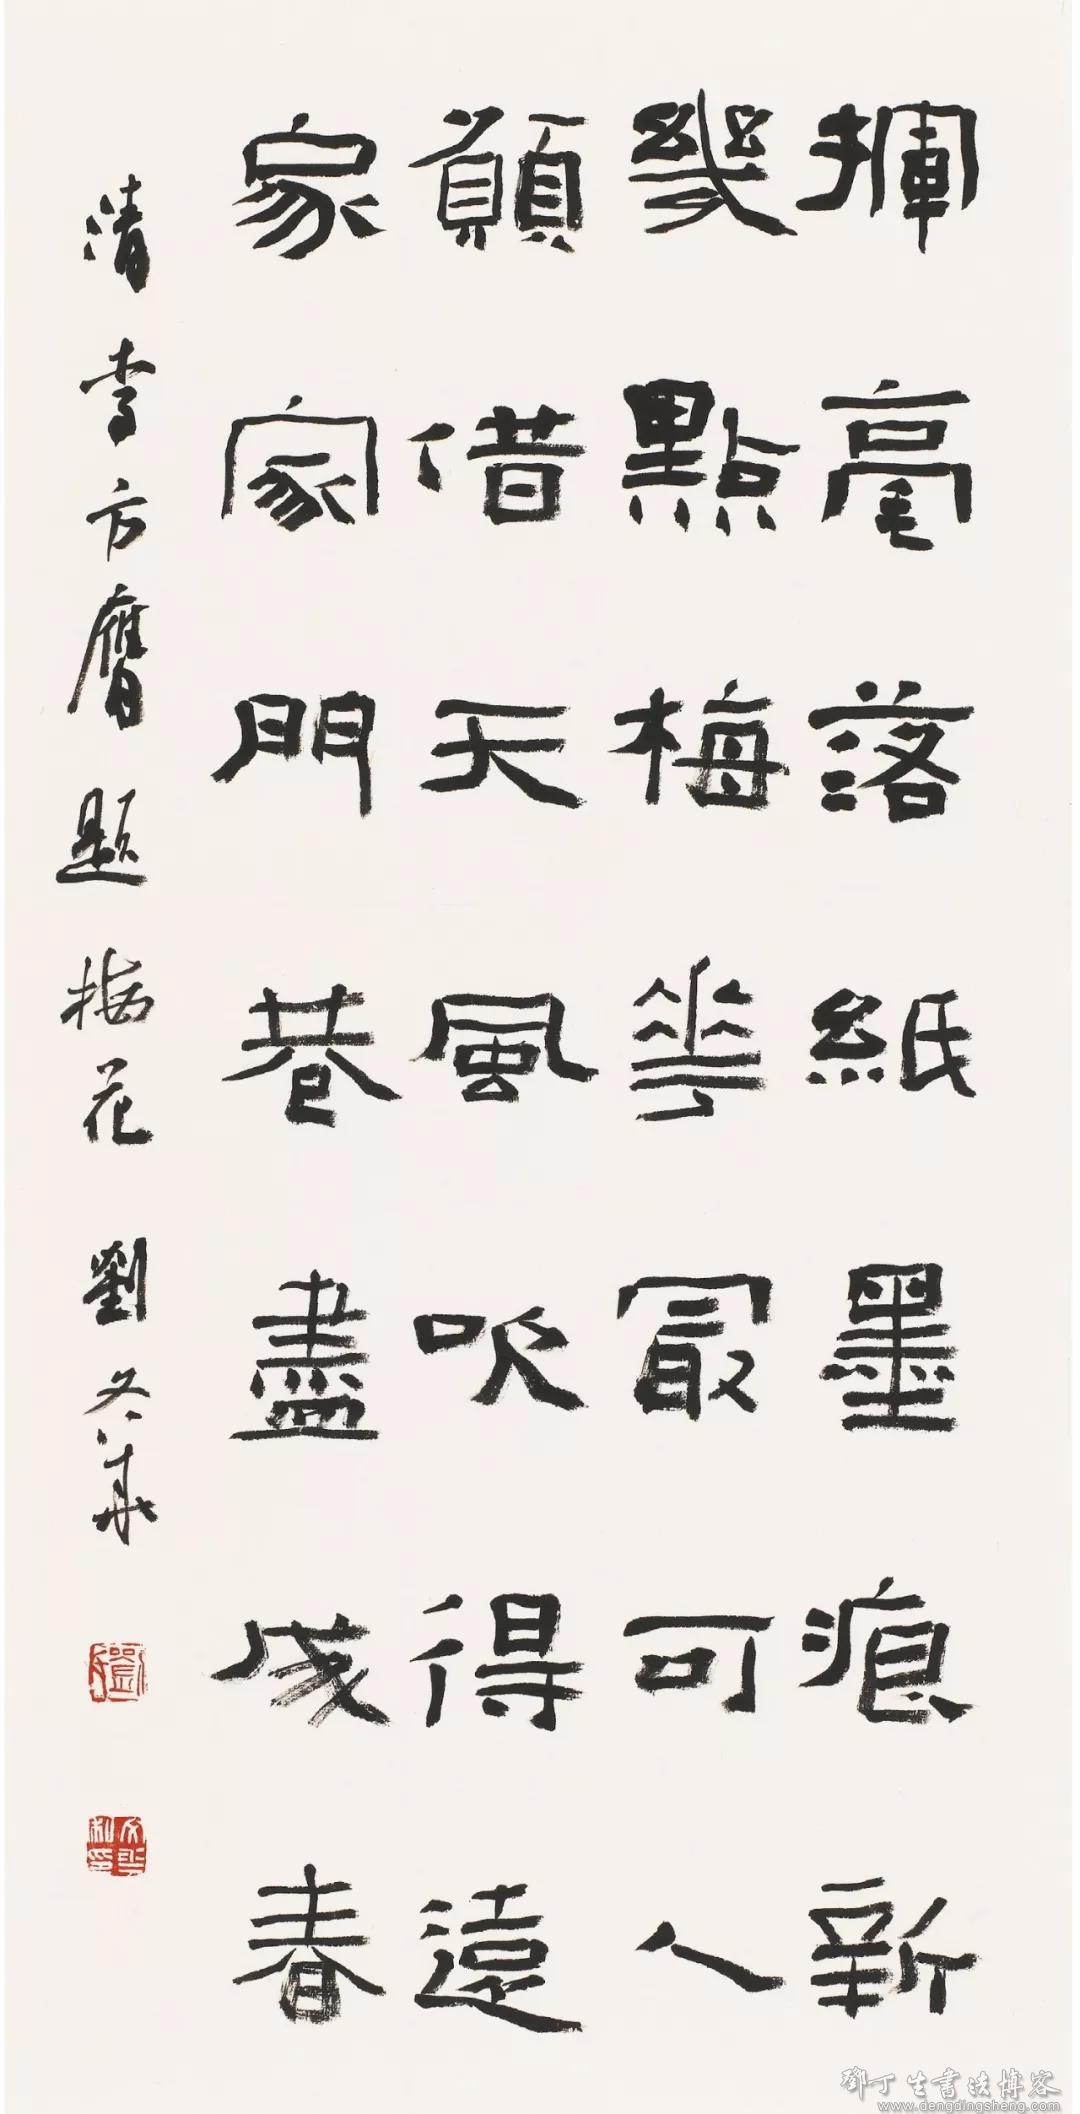 揮毫落紙墨痕新
幾點梅花最可人
願借天風吹得遠
家家門巷盡成春
清李方膺題梅花 劉文華
鄧丁生書法博客
www.dengdingsheng.com